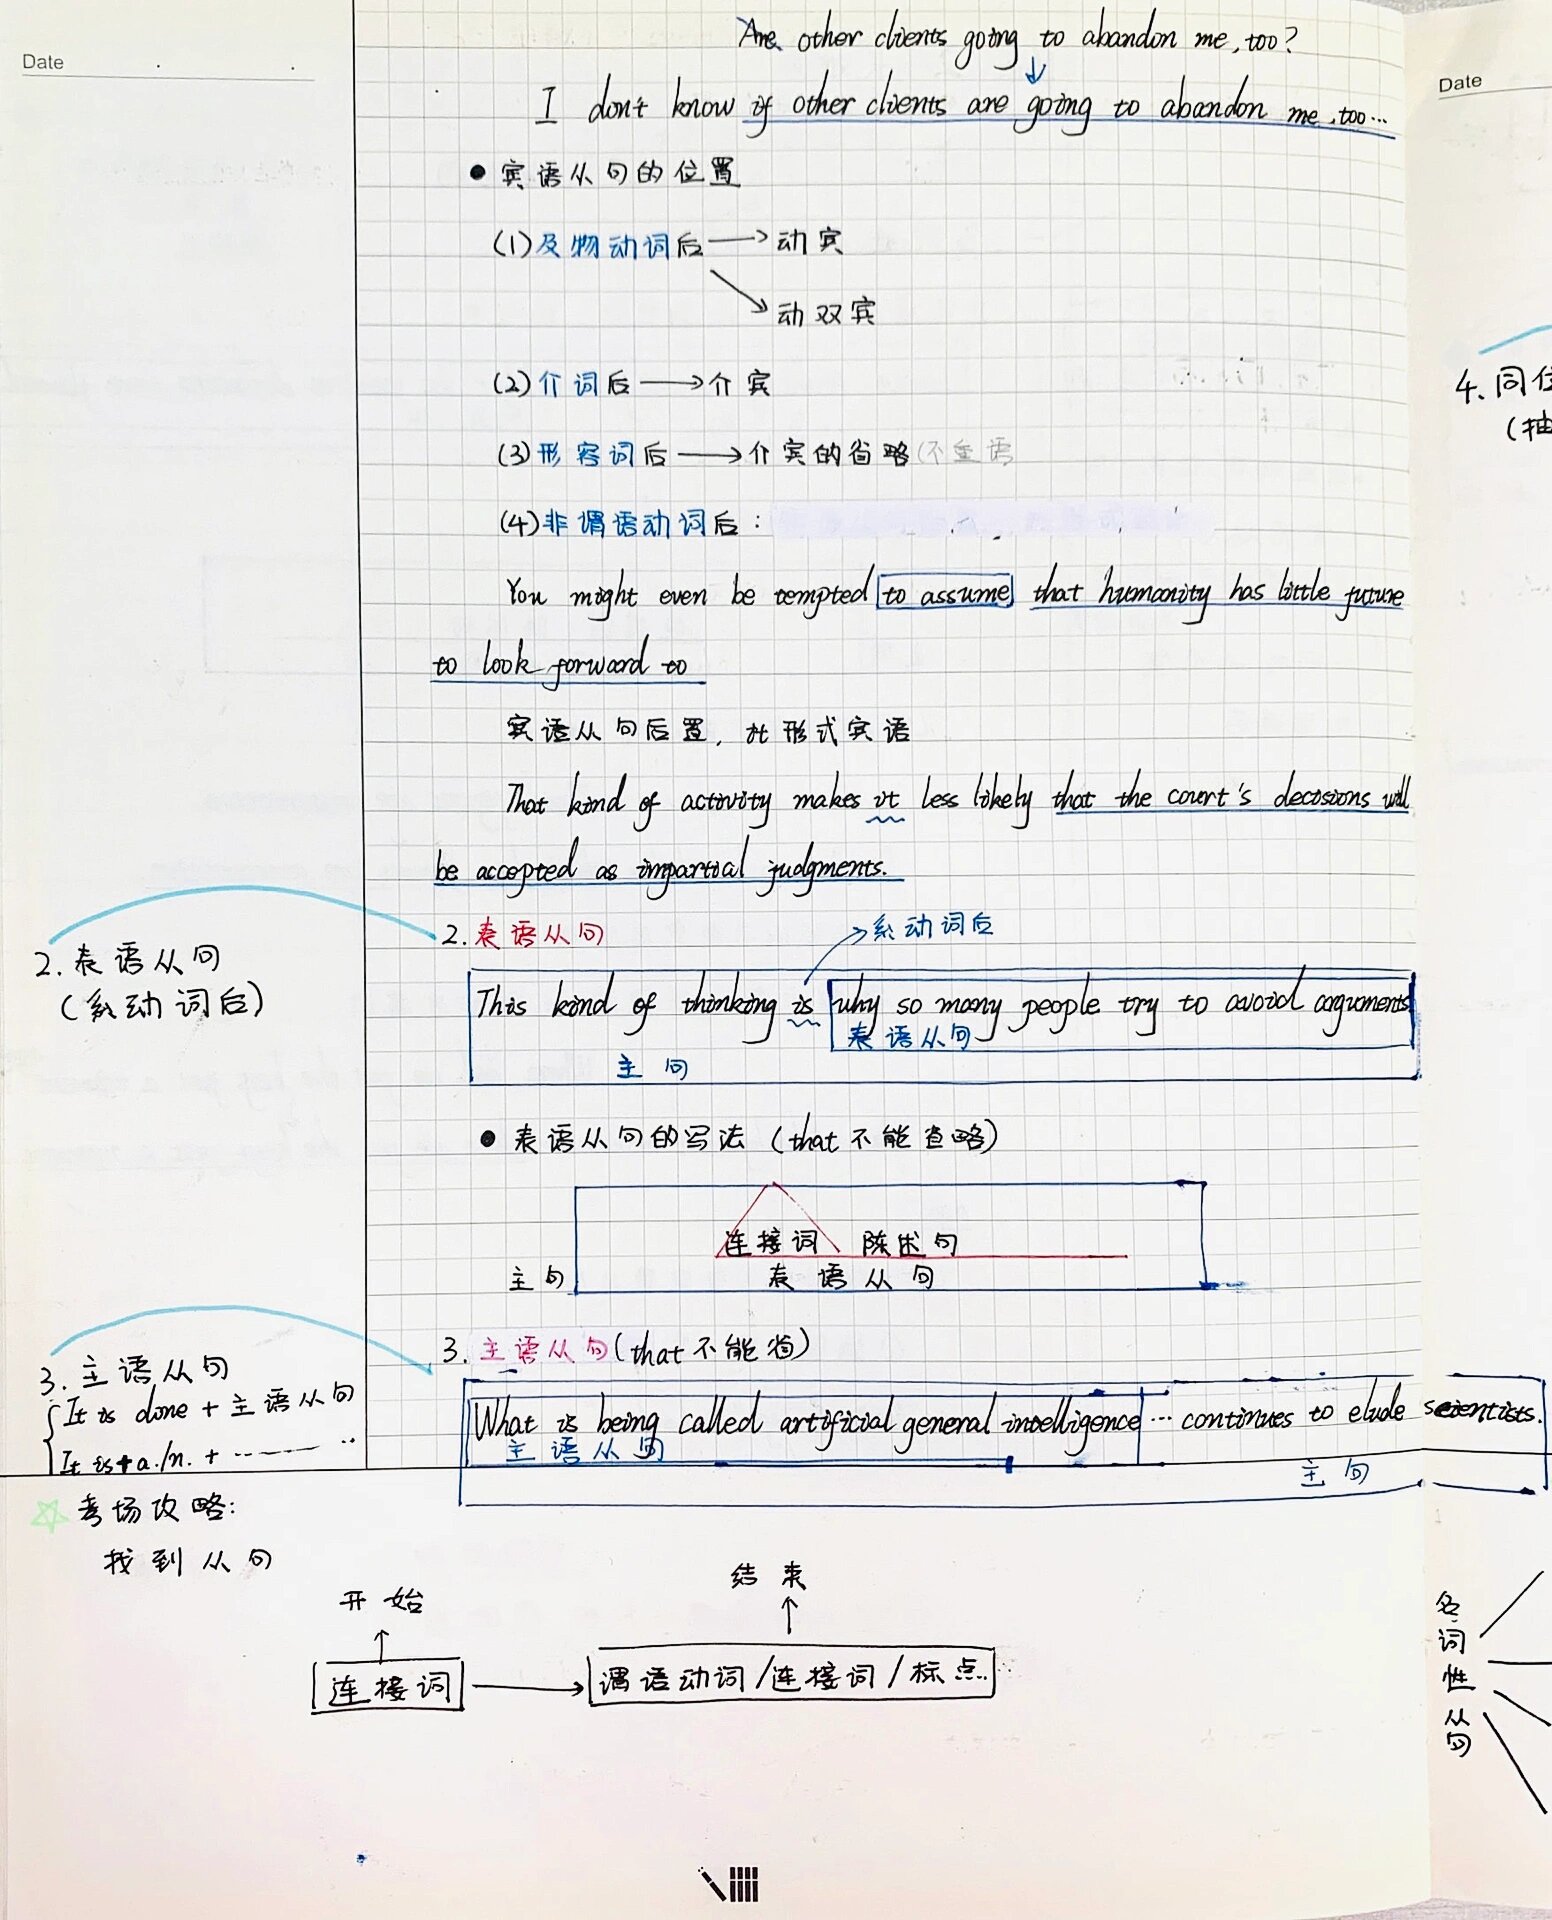 Date
Are other clients going to abandon me, too?
I don't know if other clients are going to abandon me, too...
● 宾语从句的位置
(1)及物动词后→动宾
动双宾
(2)介词后→介宾
(3)形容词后→介宾的省略(不是语
(4)非谓语动词后:
You might even be tempted to assume that humanity has little future
to look forward to
宾语从句后置, it形式宾语
That kind of activity makes it less likely that the court's decisions will
be accepted as impartial judgments.
2. 表语从句
系动词后
This kind of thinking is why so many people try to avoid arguments
表语从句
主句
● 表语从句的写法 (that不能省略)
连接词 陈述句
主句 表语从句
3. 主语从句(that不能省)
What is being called artificial general intelligence ... continues to elude scientists.
主语从句
主句
2. 表语从句
(系动词后)
3. 主语从句
It is done + 主语从句
It is + a./n. + ……
考场攻略:
找到从句
开始
结束
连接词→谓语动词/连接词/标点
Date
4. 同位
(抽
名
词
性
从
句